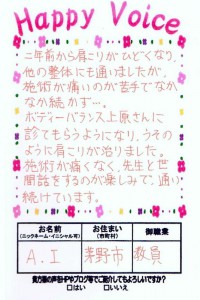 Happy Voice
二年前から肩こりがひどくなり、
他の整体にも通いましたが、
施術が痛いのが苦手でなか
なか続かず…。
ボディーバランス上原さんに
診てもらうようになり、うその
ように肩こりが治りました。
施術が痛くなく、先生と世
間話をするのが楽しみで、通い
続けています。
お名前 お住まい 御職業
(ニックネーム・イニシャル可) (市町村)
A.I 茅野市 教員
貴方様の声をHPやブログ等でご紹介してもよろしいですか？
□はい □いいえ